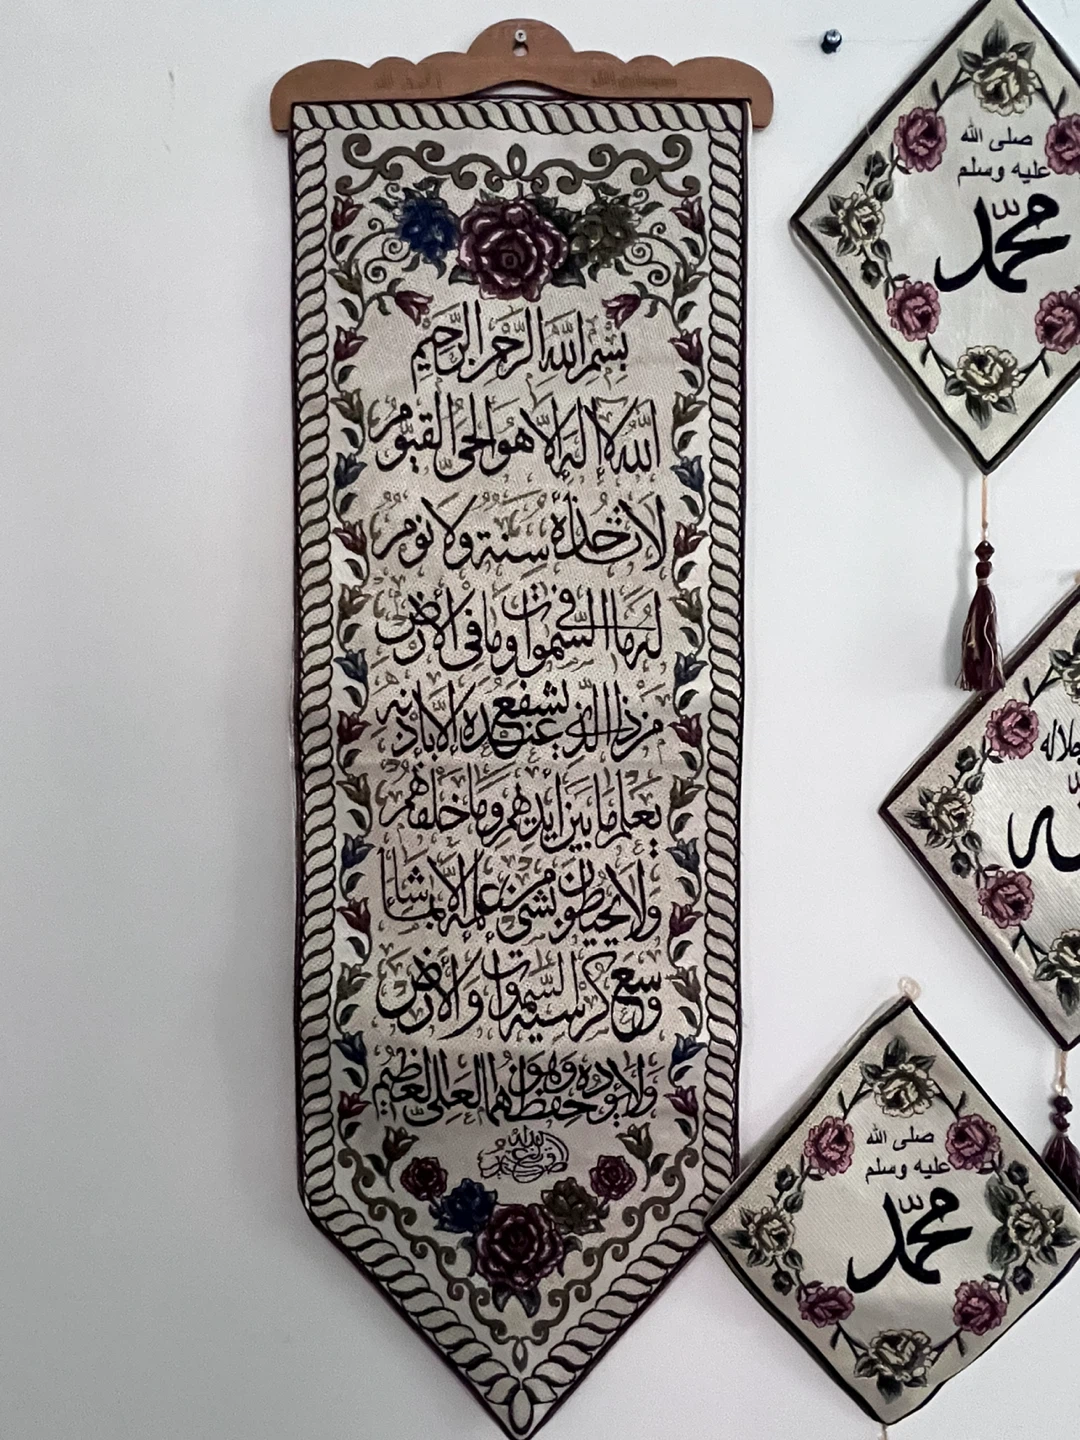 بِسْمِ اللَّهِ الرَّحْمٰنِ الرَّحِيمِ
اللَّهُ لَا إِلٰهَ إِلَّا هُوَ الْحَيُّ الْقَيُّومُ
لَا تَأْخُذُهُ سِنَةٌ وَلَا نَوْمٌ
لَهُ مَا فِي السَّمٰوَاتِ وَمَا فِي الْأَرْضِ
مَنْ ذَا الَّذِي يَشْفَعُ عِنْدَهُ إِلَّا بِإِذْنِهِ
يَعْلَمُ مَا بَيْنَ أَيْدِيهِمْ وَمَا خَلْفَهُمْ
وَلَا يُحِيطُونَ بِشَيْءٍ مِنْ عِلْمِهِ إِلَّا بِمَا شَاءَ
وَسِعَ كُرْسِيُّهُ السَّمٰوَاتِ وَالْأَرْضَ
وَلَا يَئُودُهُ حِفْظُهُمَا وَهُوَ الْعَلِيُّ الْعَظِيمُ
صدق الله العظيم
صلى الله
عليه وسلم
محمد
جلاله
صلى الله
عليه وسلم
محمد